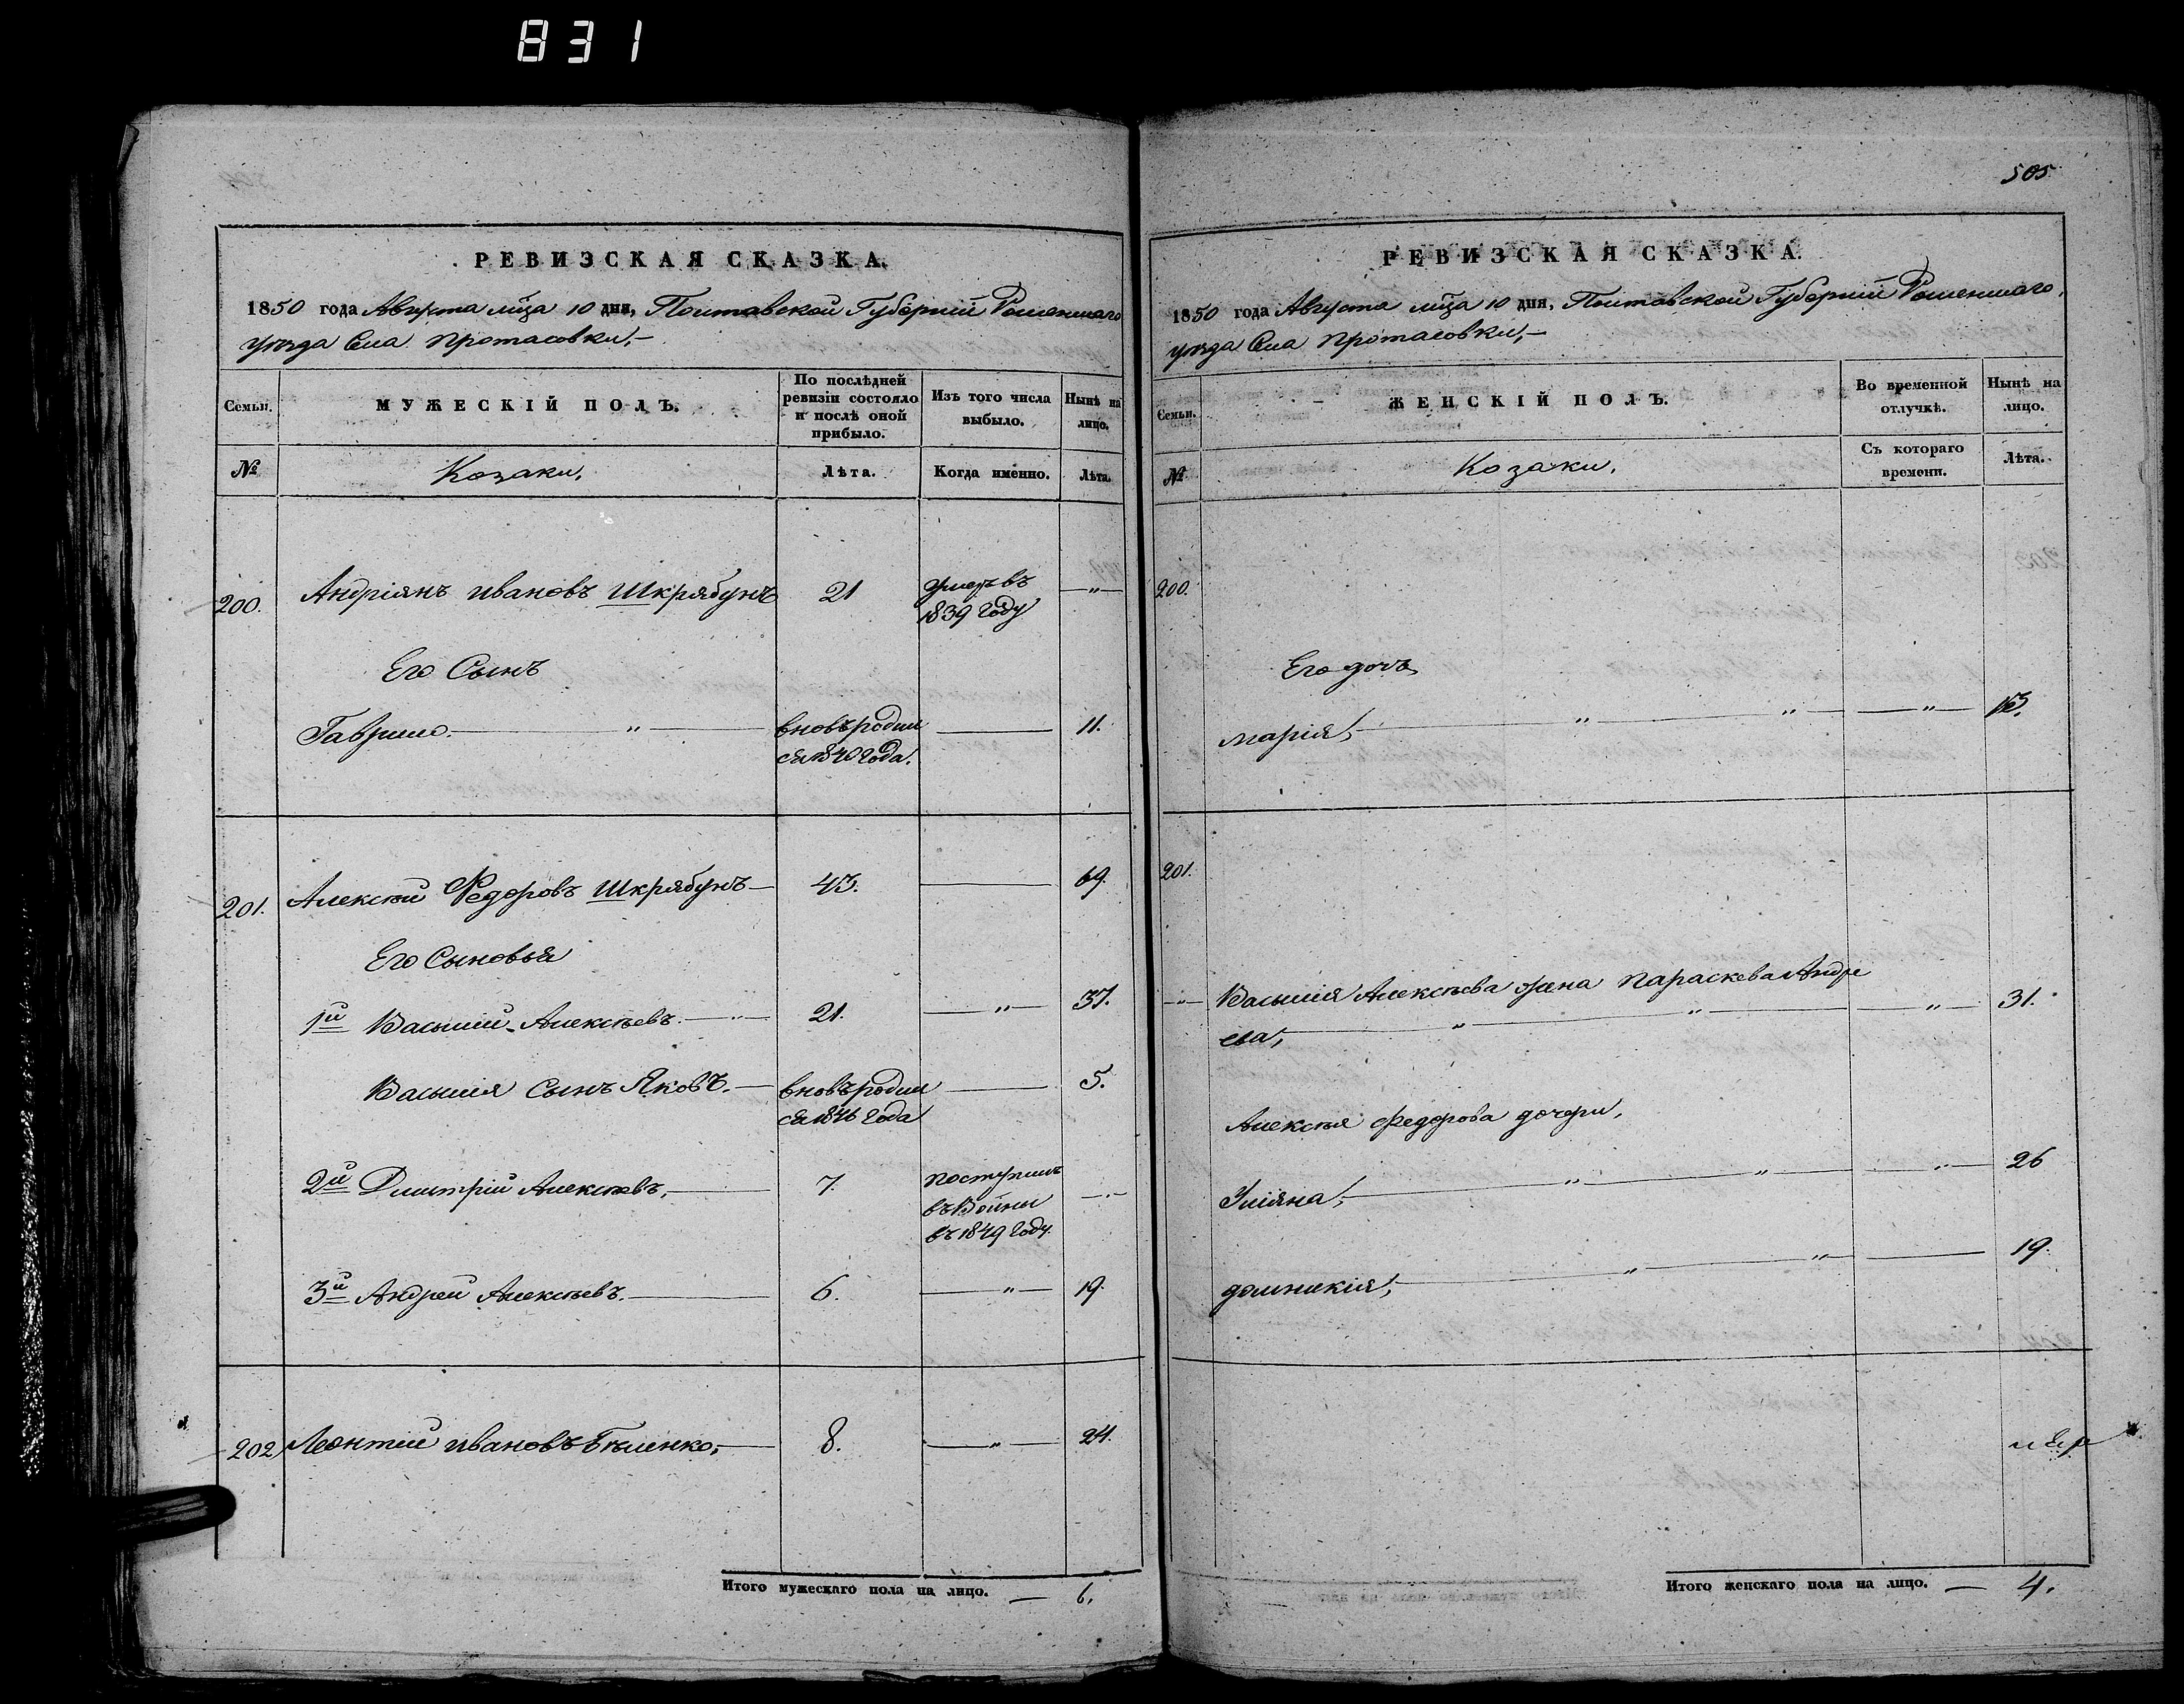 831
РЕВИЗСКАЯ СКАЗКА.
1850 года Августа мца 10 дня, Полтавской Губерніи Роменскаго
уезда Села Протасовки,—
Семьи.
МУЖЕСКІЙ ПОЛЪ.
По послѣдней ревизіи состояло и послѣ оной прибыло.
Изъ того числа выбыло.
Нынѣ на лицо.
№
Козаки.
Лѣта.
Когда именно.
Лѣта.
200. Андріянъ Ивановъ Шкрябунъ 21 умеръ въ — „ —
1839 году
Его Сынъ
Гаврило. — „ — вновь родил — 11.
ся 1840 года.
201. Алексѣй Федоровъ Шкрябунъ — 43. — 69.
Его Сыновья
1й Василий Алексѣевъ. — „ — 21. — „ — 37.
Василия Сынъ Яковъ. — вновь родил — 5.
ся 1846 года
2й Дмитрій Алексѣевъ, — 7. поступилъ — „ —
въ 1849 году.
3й Андрей Алексѣевъ. — 6. — „ — 19.
202. Леонтий Ивановъ Бѣленко, — 8. — „ — 24.
Итого мужескаго пола на лицо. — 6.
505
РЕВИЗСКАЯ СКАЗКА.
1850 года Августа мца 10 дня, Полтавской Губерніи Роменскаго,
уезда Села Протасовки,—
Семьи.
ЖЕНСКІЙ ПОЛЪ.
Во временной отлучкѣ.
Нынѣ на лицо.
№
Козаки.
Съ котораго времени.
Лѣта.
200.
Его дочь
Марія, — „ — „ — — „ —
201.
— „ — Василия Алексѣева жена Параскева Андре
ева, — „ — „ — — „ — 31.
Алексѣя Федорова дочери,
Уліяна, — „ — „ — — „ — 26
Домникія, — „ — „ — — 19.
Итого женскаго пола на лицо. — 4.